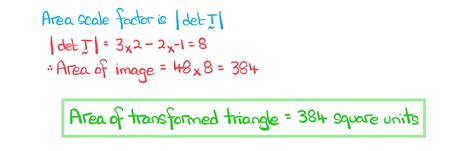 Area scale factor is |det T|
|det T| = 3x2 - 2x-1 = 8
∴ Area of image = 48 x 8 = 384
Area of transformed triangle = 384 square units